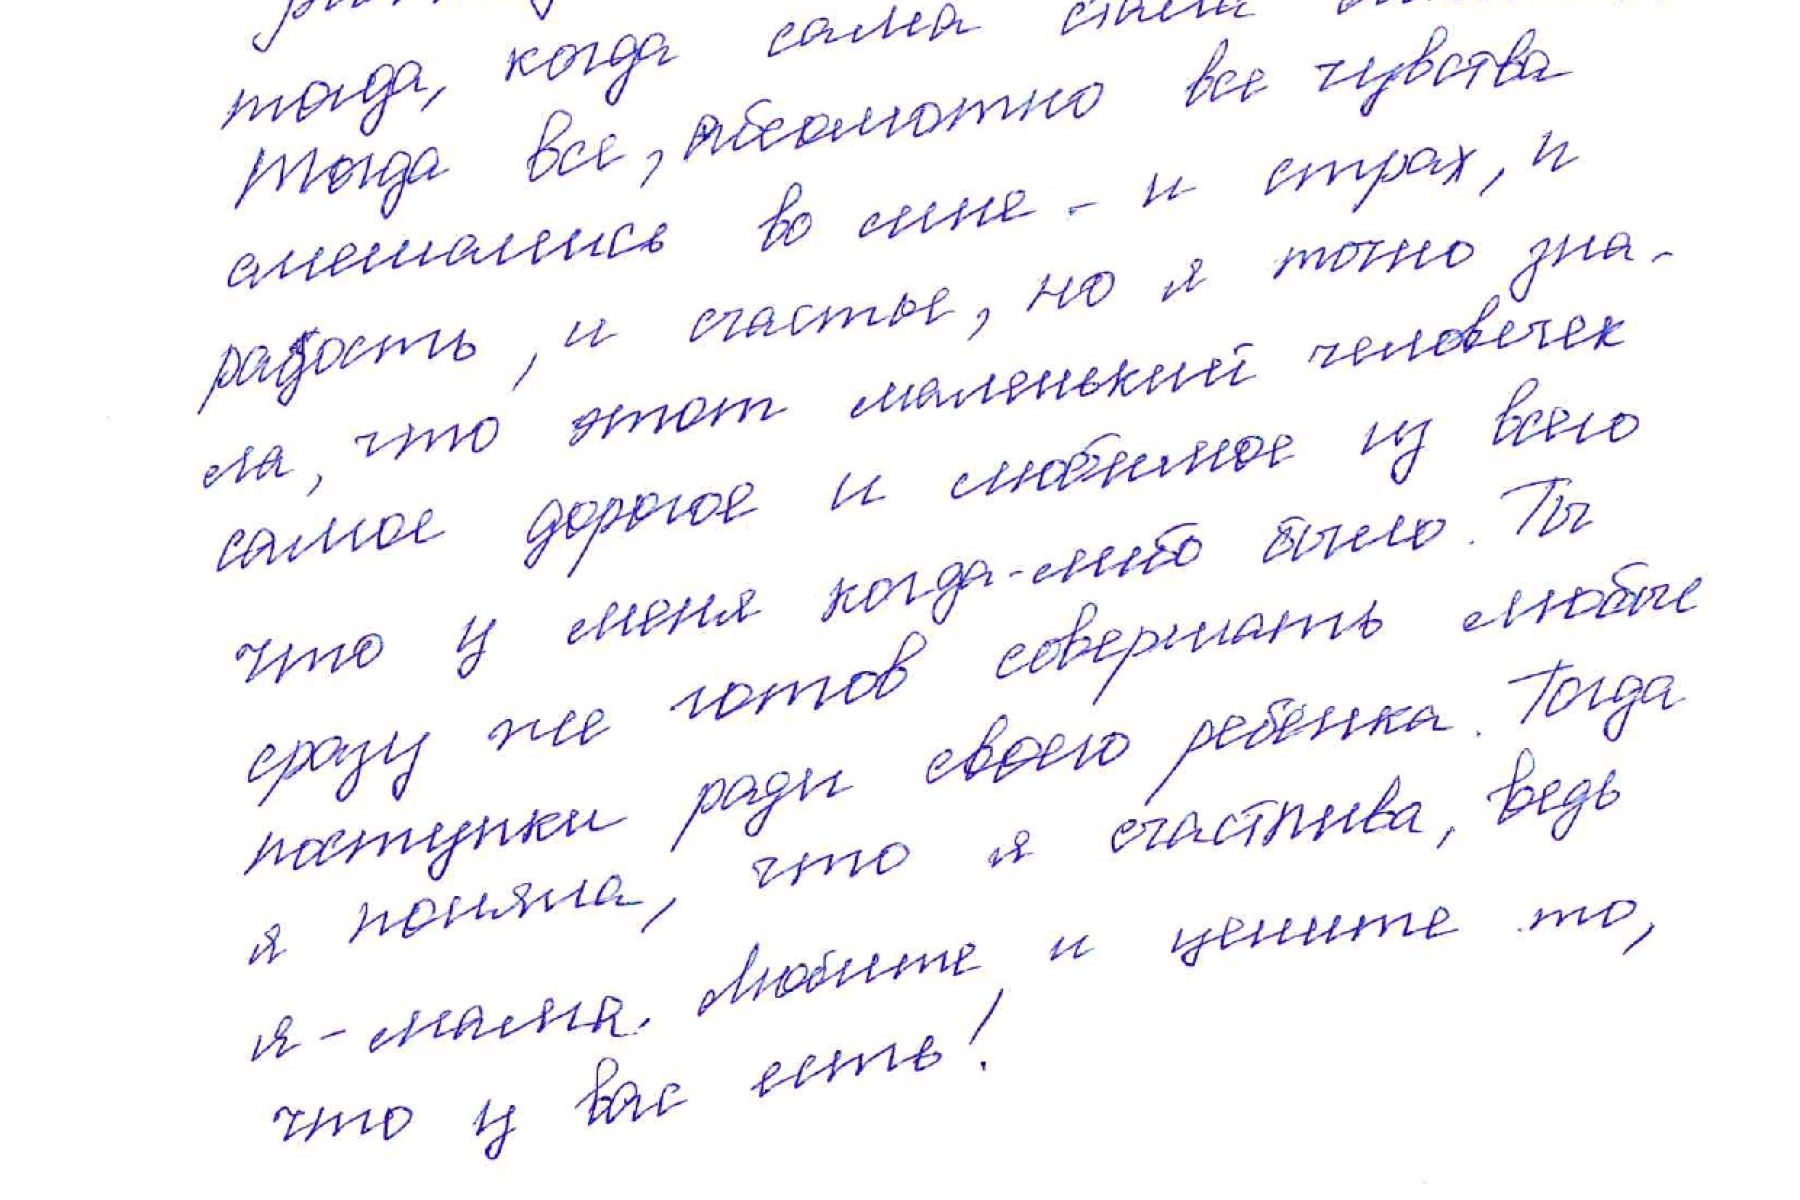 тогда, когда сама стала
Тогда все, абсолютно все чувства
смешались во мне - и страх, и
радость, и счастье, но я точно зна-
ла, что этот маленький человечек
самое дорогое и любимое из всего
что у меня когда-либо было. Ты
сразу же готов совершать любые
поступки ради своего ребенка. Тогда
я поняла, что я счастлива, ведь
я - мама. Любите и цените то,
что у вас есть!